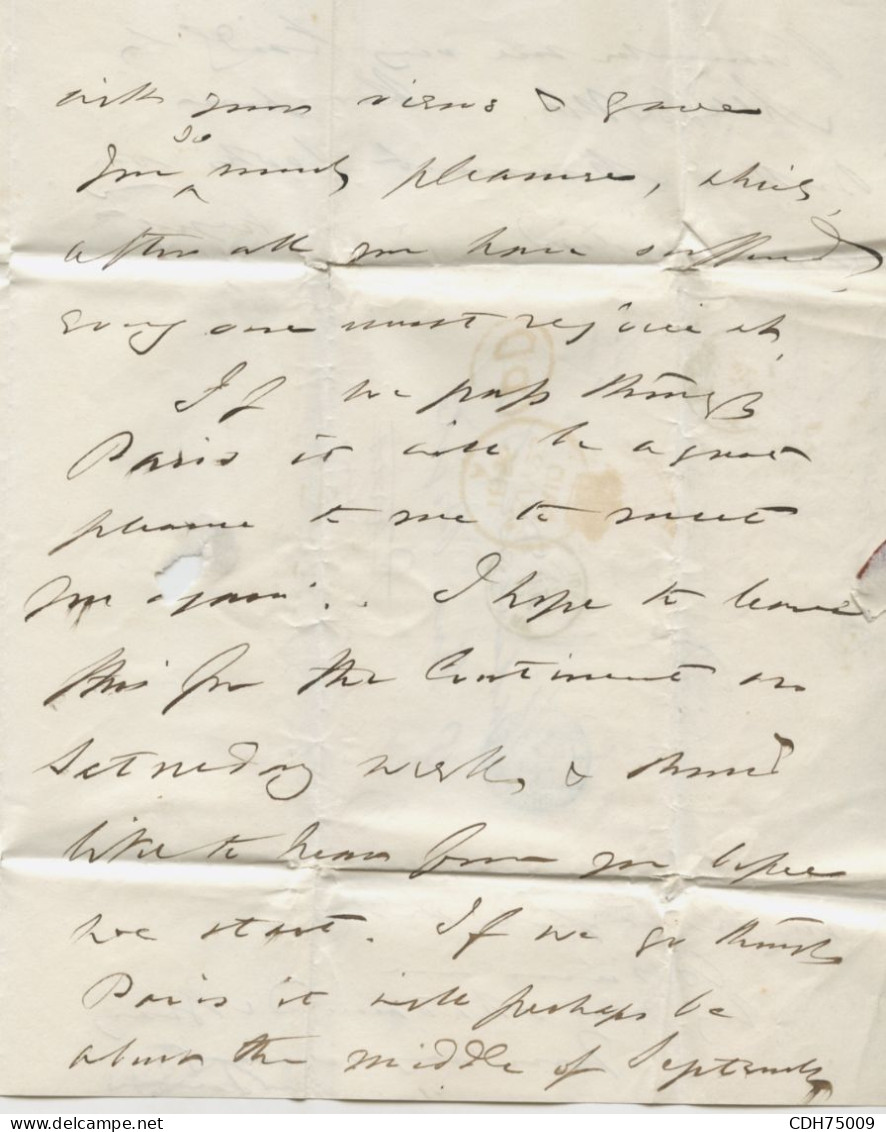 with your views & gave
you so much pleasure, which,
after all you have suffered,
every one must rejoice at.
If we pass through
Paris it will be a great
pleasure to me to meet
you again. I hope to leave
this for the Continent on
Saturday week, & should
like to hear from you before
we start. If we go through
Paris it will perhaps be
about the middle of September
PD
CDH75009